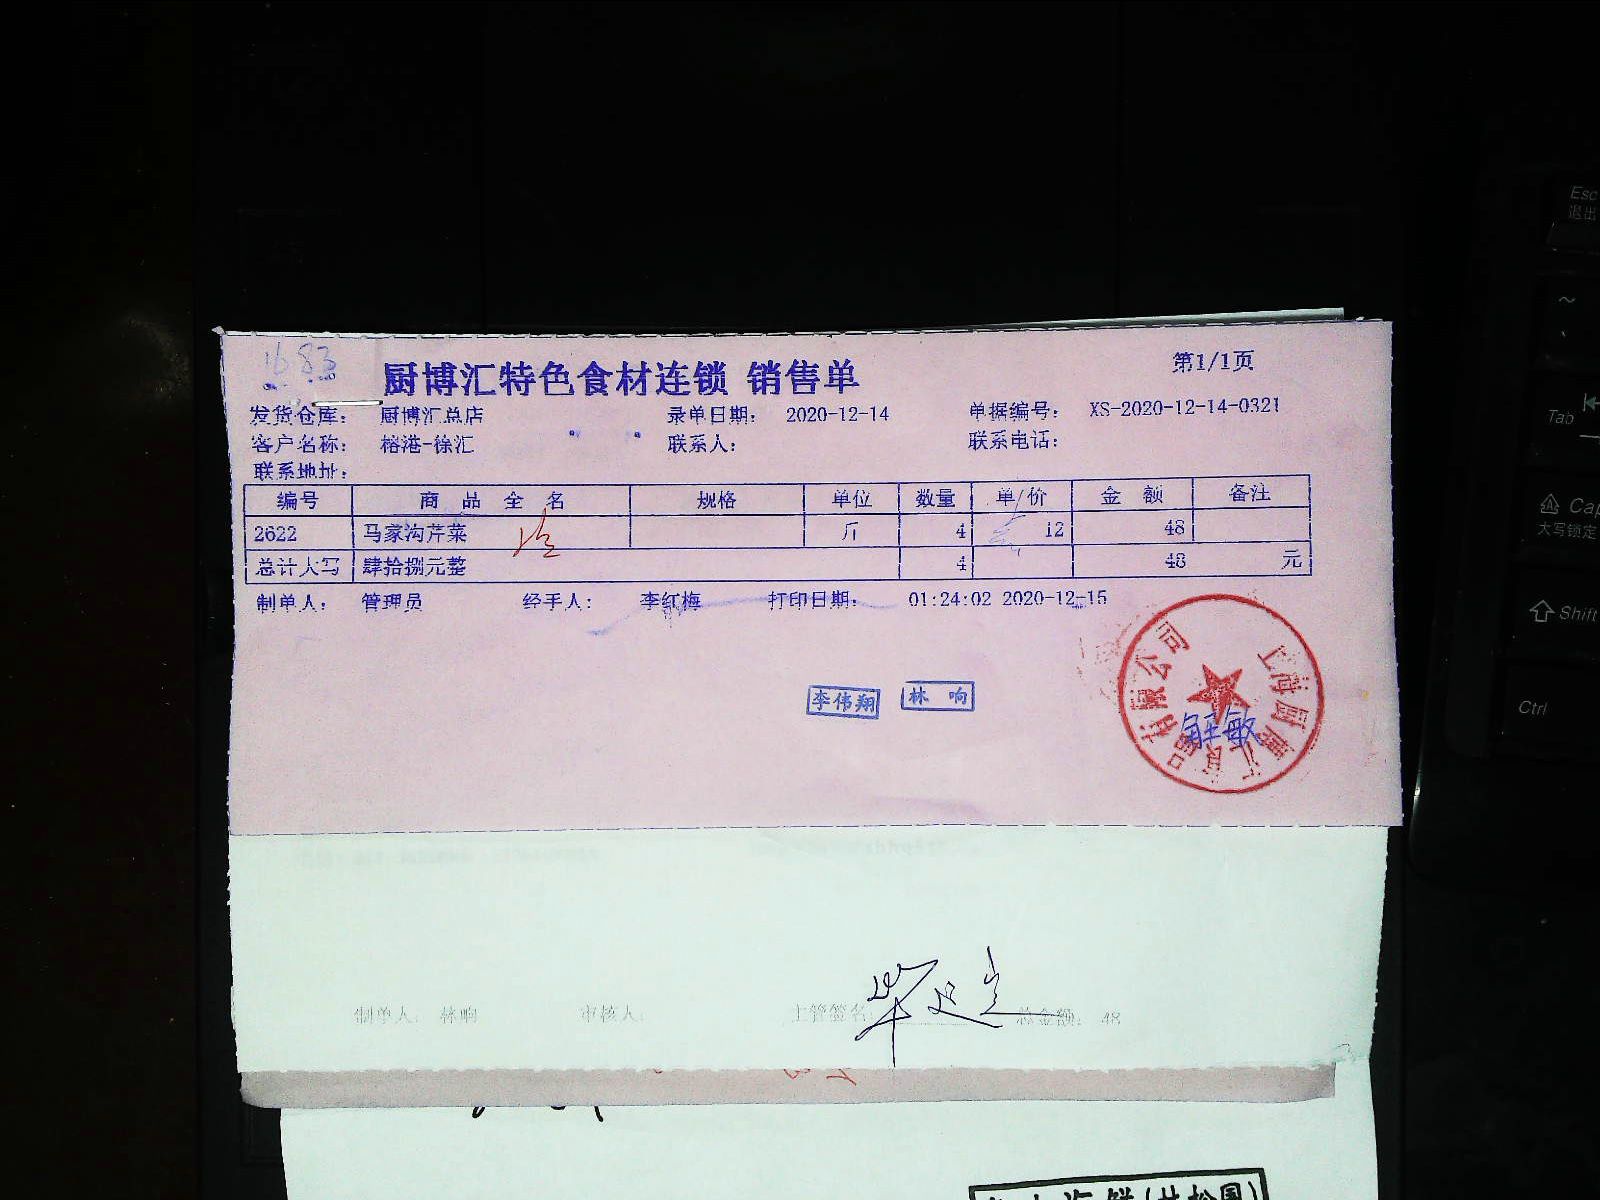 1683
厨博汇特色食材连锁 销售单
第1/1页
发货仓库： 厨博汇总店 录单日期： 2020-12-14 单据编号： XS-2020-12-14-0321
客户名称： 榕港-徐汇 联系人： 联系电话：
联系地址：
编号 商品全名 规格 单位 数量 单价 金额 备注
2622 马家沟芹菜 斤 4 12 48
总计大写 肆拾捌元整 4 48 元
制单人： 管理员 经手人： 李红梅 打印日期： 01:24:02 2020-12-15
李伟翔 林响
上海厨博汇食品有限公司
解敏
制单人： 林响 审核人： 主管签名： 总金额： 48
Esc
退出
Tab
Cap
大写锁定
Shift
Ctrl